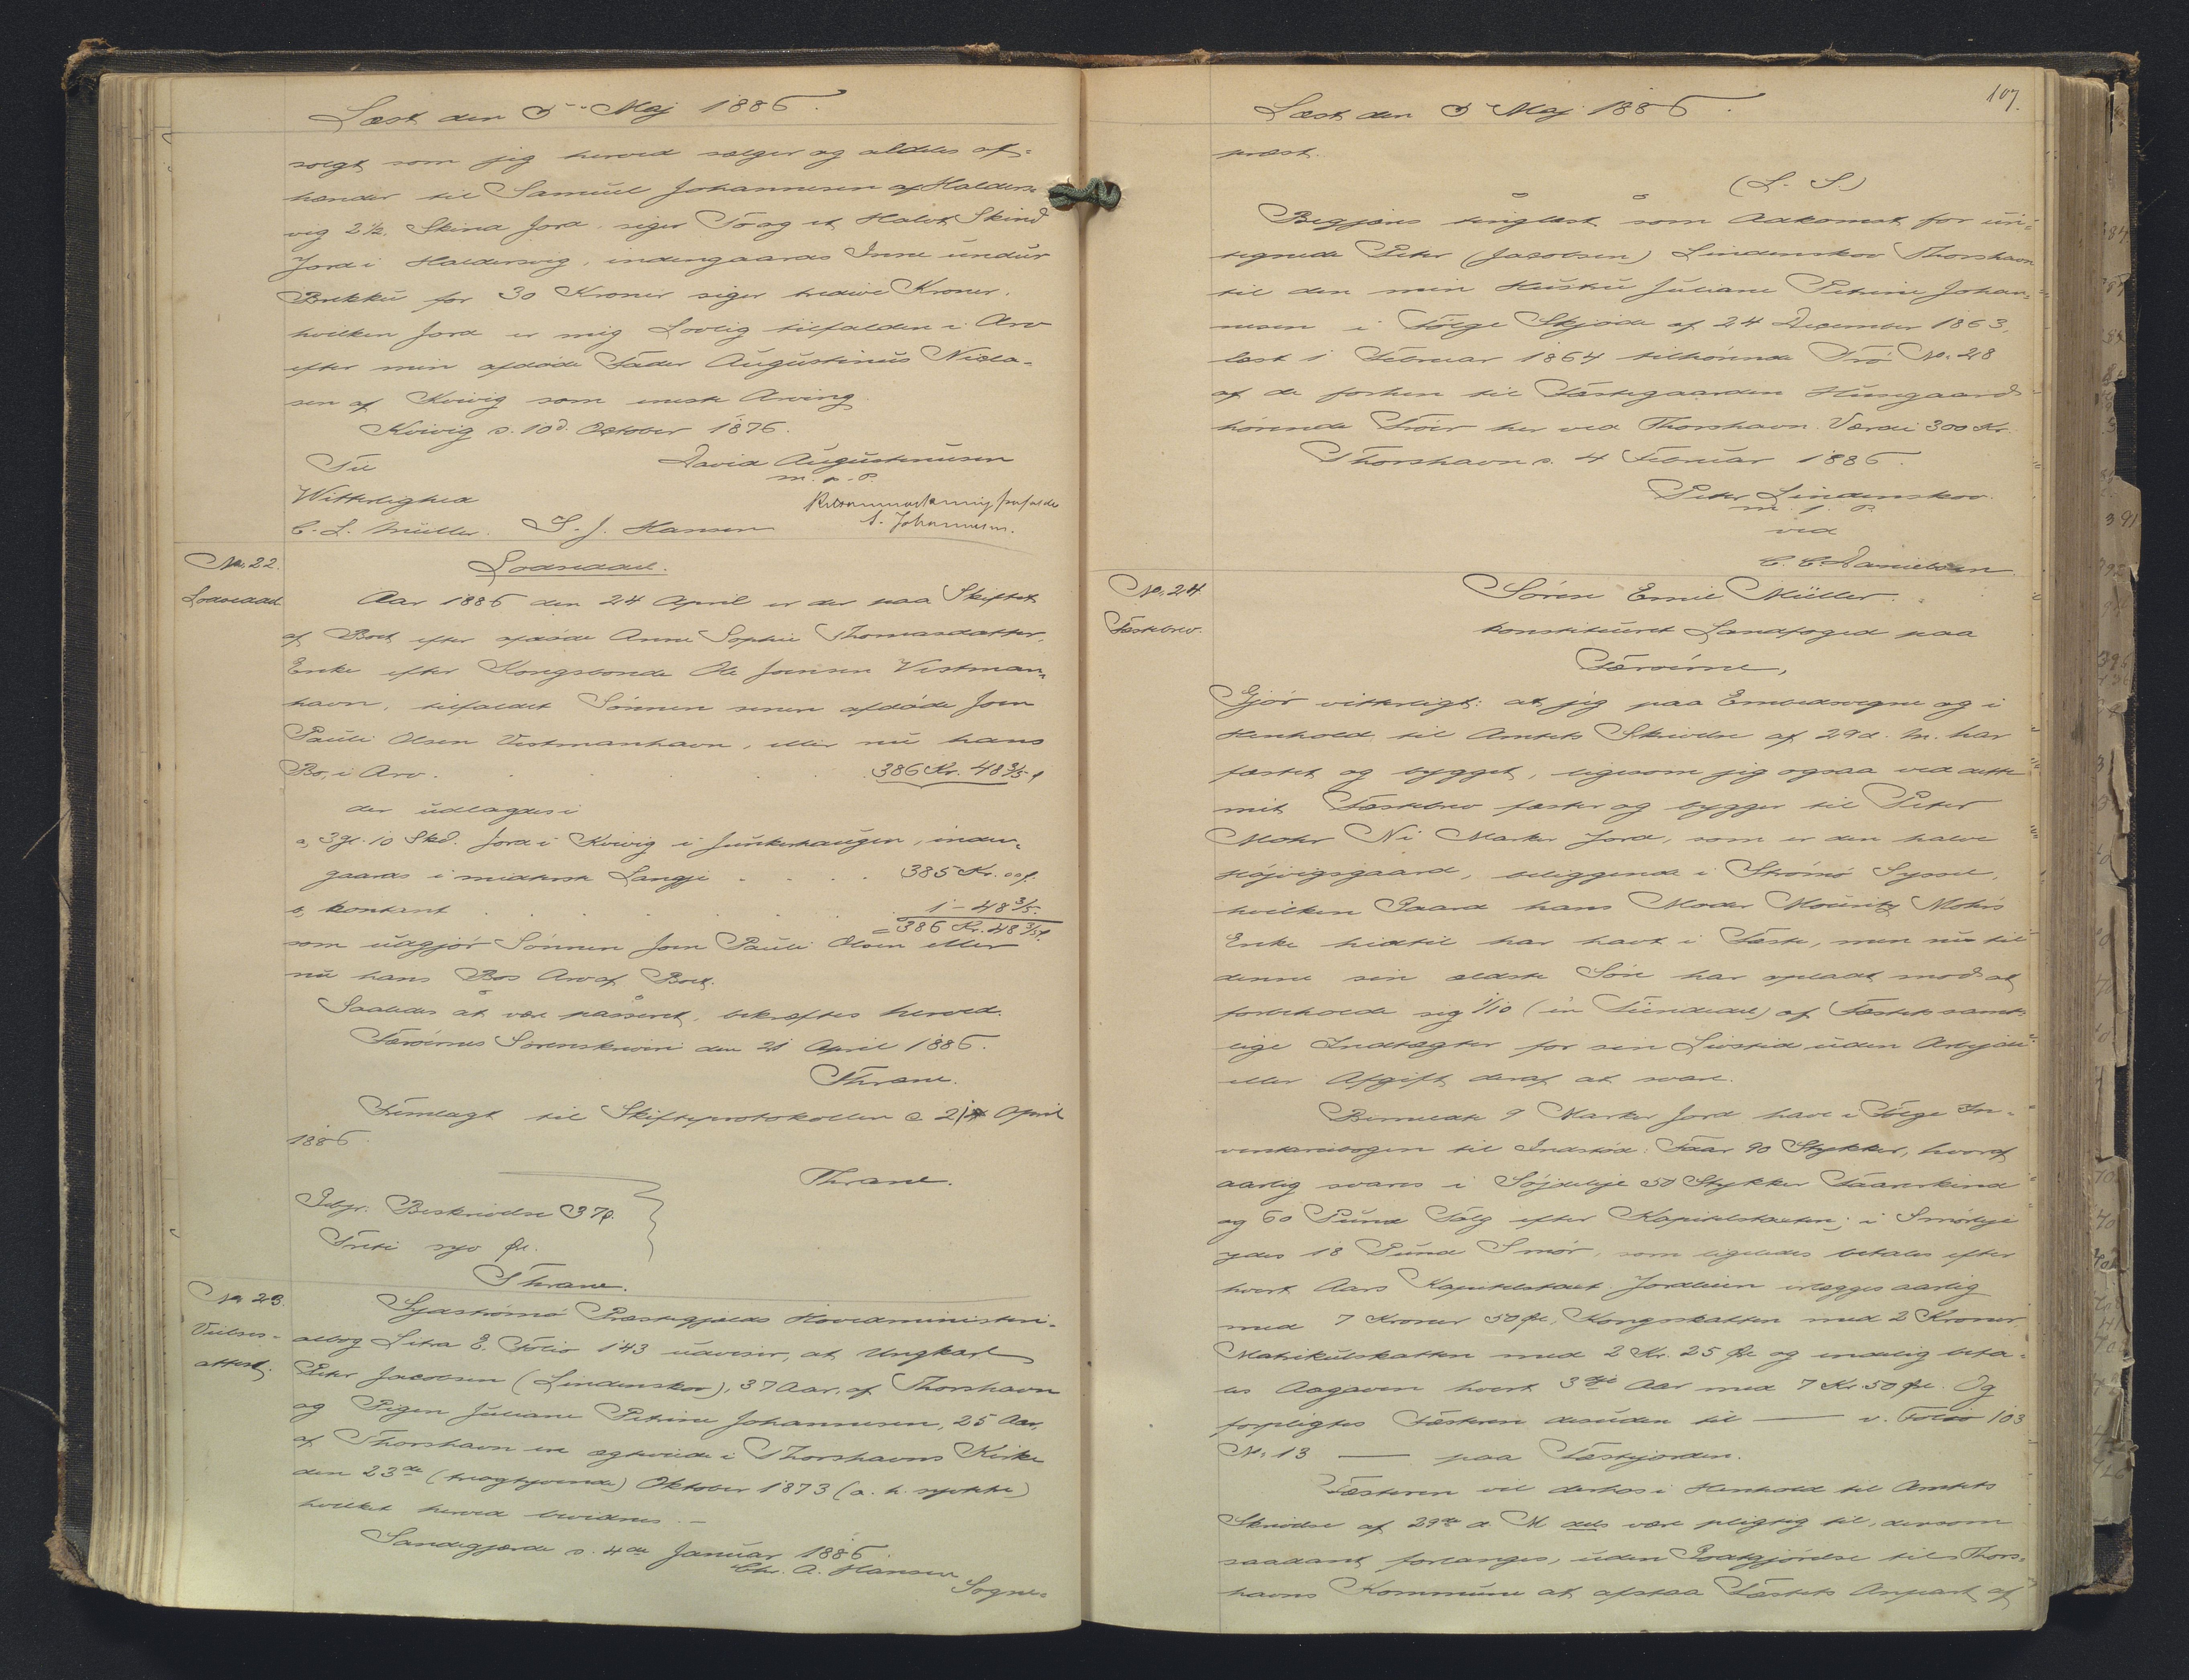 Læst den 5 Maj 1886.
solgt som jeg herved sælger og aldeles af-
hænder til Samuel Johannesen af Halders-
vig 2½ Skind Jord, siger To og et Halvt Skind
Jord i Haldersvig, indengaards Inne undur
Brekku for 30 Kroner siger tredive Kroner,
hvilken Jord er mig Lovlig tilfalden i Arv
efter min afdøde Fader Augustinus Nicla-
sen af Kvivig som eneste Arving.
Kvivig d. 10d. October 1876.
Til David Augustinusen
m. p. P.
Witterlighed
C. L. Müller. S. J. Hansen S. Johannesen.
No. 22. Lodseddel.
Lodseddel Aar 1886 den 24 April er der paa Skiftet
af Boet efter afdøde Anne Sophie Thomasdatter,
Enke efter Kongsbonde Ole Joensen Vestman-
havn, tilfaldet Sønnen senere afdøde Joen
Pauli Olsen Vestmanhavn, eller nu hans
Bo, i Arv. 386 Kr. 48 3/5 f
der udlagdes i
a, 3 gl. 10 Skd. Jord i Kvivig i Junkerhaugen, inden-
gaards i midterste Langji 385 Kr. 00 f.
b, kontant 1 - 48 3/5.
= 386 Kr. 48 3/5 f.
som udgjør Sønnen Joen Pauli Olsen eller
nu hans Bos Arv af Boet.
Saaledes at være passeret, bekræftes herved.
Færøernes Sorenskriveri den 21 April 1886.
Thrane.
Fremlagt til Skifteprotokollen d. 21 April
1886
Thrane.
Gebyr. Beskrivelse 37 f.
Treti syv Øre.
Thrane.
No 23. Sydstrømø Præstegjælds Hovedministeri-
Vielses- albog Litra E. Folio 143 udviser, at Ungkarl
attest. Peter Jacobsen (Lindenskov), 37 Aar, af Thorshavn
og Pigen Juliane Petrine Johannesen, 25 Aar,
af Thorshavn ere ægteviede i Thorshavns Kirke
den 23de (treogtyvende) Oktober 1873 (a. h. syvtitre)
hvilket herved bevidnes. -
Sandegjærde d. 4de Januar 1886
Chr. A. Hansen
Sogne-
107.
Læst den 5 Maj 1886.
præst.
(L. S.)
Begjæres tinglæst som Adkomst for un-
tegnede Peter (Jacobsen) Lindenskov Thorshavn
til den min Hustru Juliane Petrine Johan-
nesen i Følge Skjøde af 24 December 1863,
læst i Februar 1864 tilhørende Trø No. 28
af de forhen til Fæstegaarden Husegaard
hørende Trøer her ved Thorshavn. Værdi 300 Kr.
Thorshavn d. 4 Februar 1886.
Peter Lindenskov.
m. f. P.
ved
C. C. Danielsen
No. 24 Søren Emil Müller.
Fæstebrev. konstitueret Landfoged paa
Færøerne,
Gjør vitterligt: at jeg paa Embedsvegne og i
Henhold til Amtets Skrivelse af 29 d. M. har
fæstet og bygget, ligesom jeg ogsaa ved dette
mit Fæstebrev fæster og bygger til Peter
Mohr Ni Marker Jord, som er den halve
Højvigsgaard, beliggende i Strømø Syssel,
hvilken Gaard hans Moder Mouritz Mohrs
Enke hidtil har havt i Fæste, men nu til
denne sin ældste Søn har opladt mod at
forbeholde sig 1/10 (en Tiendedel) af Fæstets samt-
lige Indtægter for sin Livstid uden Arbejde
eller Afgift deraf at svare.
Bemeldte 9 Marker Jord have i Følge In-
ventariebogen til Indstød: Faar 90 Stykker, hvoraf
aarlig svares i Søjdeleje 50 Stykker Faareskind
og 60 Pund Talg efter Kapitelstaxten; i Smørleje
ydes 18 Pund Smør, som ligeledes betales efter
hvert Aars Kapitelstaxt. Jordleien erlægges aarlig
med 7 Kroner 50 Øre, Kongsskatten med 2 Kroner
Matrikulskatten med 2 Kr. 25 Øre og endelig beta-
les Aagaven hvert 3die Aar med 7 Kr. 50 Øre. Og
forpligtes Fæsteren desuden til — v. Folio 103
No. 13 — paa Fæstejorden.
Fæsteren vil derhos i Henhold til Amtets
Skrivelse af 29de d. M dels være pligtig til, dersom
saadant forlanges, uden Godtgjørelse til Thors-
havns Kommune at afstaa Fæstets Anpart af